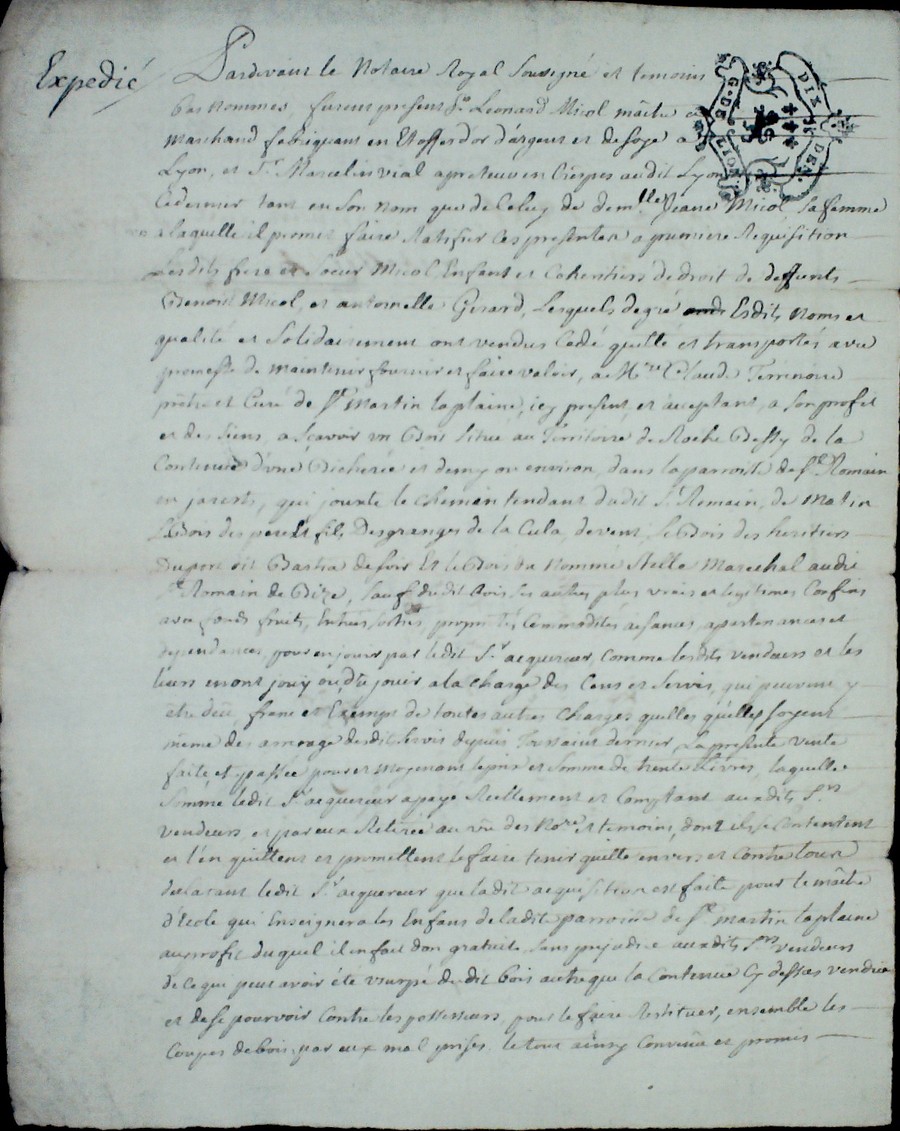 Expedié
Pardevant le Notaire Royal Soussigné et temoins
bas Nommés, furent present Sr. Leonard Micol maitre et
Marchand fabriquant en Etoffes d'or d'argent et de Soye a
Lyon, et Sr. Marcelin vial apreteur en Crespes audit Lyon
Ce dernier tant en Son Nom que de Celuy de demlle Jeane Micol Sa femme
a laquelle il promet faire Ratifier Ces presentes a premiere Requisition
Lesdits frere et Soeur Micol Enfant et Coheritiers de droit de deffunts
Benoit Micol, et antoinette Girard, Lesquels de gré Esdits Noms et
qualité et Solidairement ont vendus Cedé quitté et transportés avec
promesse de maintenir fournir et faire valoir, a Mre Claude Terrenoire
prêtre et Curé de St. Martin laplaine, icy present et acceptant, a Son profit
et des Siens, a Sçavoir un Bois Situé au Territoire de Roche Bessy de la
Contenüe d'une Bicherée et demy ou environ, dans la parroisse de St. Romain
en jarests, qui jouxte le Chemin tendant dudit St. Romain, de Matin
Le Bois des pere et fils Desgranges de la Cula, de vent, Le Bois des heritiers
Dupont dit Bastia de Soir Et le Bois du Nommé Relle Marechal audit
St. Romain de Bize, Sauf dudit Bois Ses autres plus vrais et legitimes Confins
avec fonds fruits, Entrées, Sorties, proprietés Commodités aisances, apartenances et
dependances, pour en jouir par ledit Sr. acquereur, Comme lesdits vendeurs et les
leurs en ont jouy ou dû jouir a la Charge des Cens et Servis, qui peuvent y
etre deüs, franc et Exempt de toutes autres Charges quelles qu'elles soyent
meme des arrerage desdit Servis depuis Toussaint dernier, La presente vente
faite, et passée pour et Moyenant le prix et Somme de trente Livres, laquelle
Somme ledit Sr. acquereur a payé Reellement et Comptant auxdits Srs
vendeurs, et par eux Retirée au vû des Nore et temoins, dont ils se Contentent
et l'en quittent et promettent le faire tenir quitte envers et Contre tous
declarant ledit Sr. acquereur que ladit acquisition est faite pour le maitre
d'Ecole qui Enseignera les Enfans de ladit parroisse de St. Martin laplaine
au profit duquel il en fait don gratuite Sans prejudice auxdits Srs vendeurs
de Ce qui peut avoir été usurpé dudit bois autre que la Contenüe Cy dessus vendüe
et de Se pourvoir Contre les possesseurs, pour le faire Restituer, ensemble les
Coupes de bois par eux mal prises le tout ainsy Convenu et promis
G. DE LION
DIX DEN.